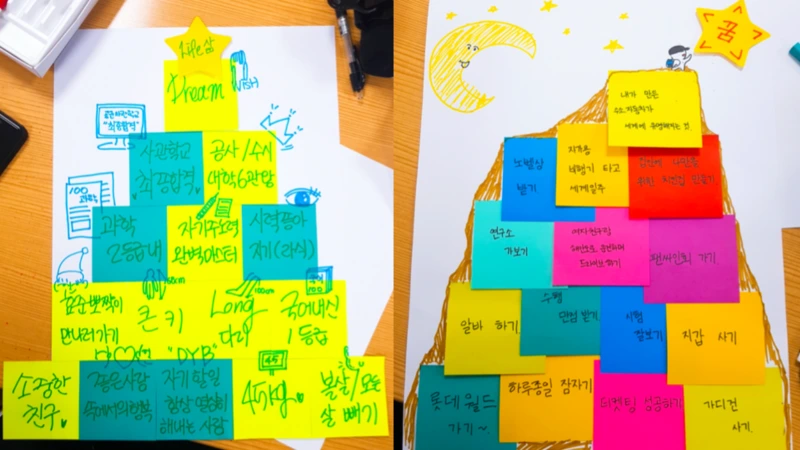 Life 샵
Dream
WISH
공군사관학교
"최종합격"
사관학교
최종합격
공사/수시
대학6관왕
100
과학
과학
2등급내
자기주도력
완벽마스터
시력좋아
지기(라식)
만나러가기
큰 키
Long
다리
국어내신
1등급
"DYB"
소중한
친구
좋은사람
속에서의 행복
자기 할일
항상 열심히
해내는 사람
45
45kg
볼살/모든
살 빼기
꿈
내가 만든
세계에 유명해지는 것
노벨상
받기
자가용
비행기 타고
세계일주
연구소
가보기
팬싸인회 가기
알바 하기
수행
만점 받기
시험
잘보기
지갑 사기
롯데월드
가기~
하루종일 잠자기
티켓팅 성공하기
가디건
사기